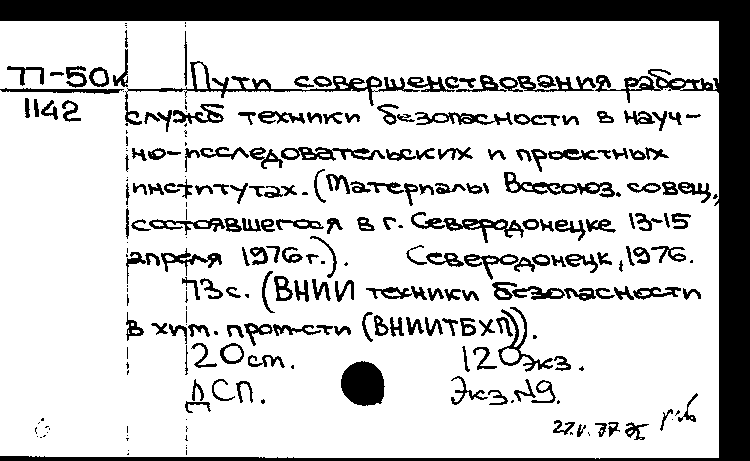 77-50к Пути совершенствования работы
1142 служб техники безопасности в науч-
но-исследовательских и проектных
институтах. (Материалы Всесоюз. совещ.,
состоявшегося в г. Северодонецке 13-15
апреля 1976 г.). Северодонецк, 1976.
73 с. (ВНИИ техники безопасности
в хим. пром-сти (ВНИИТБХП)).
20 ст. 120 экз.
ДСП. Экз. №9.